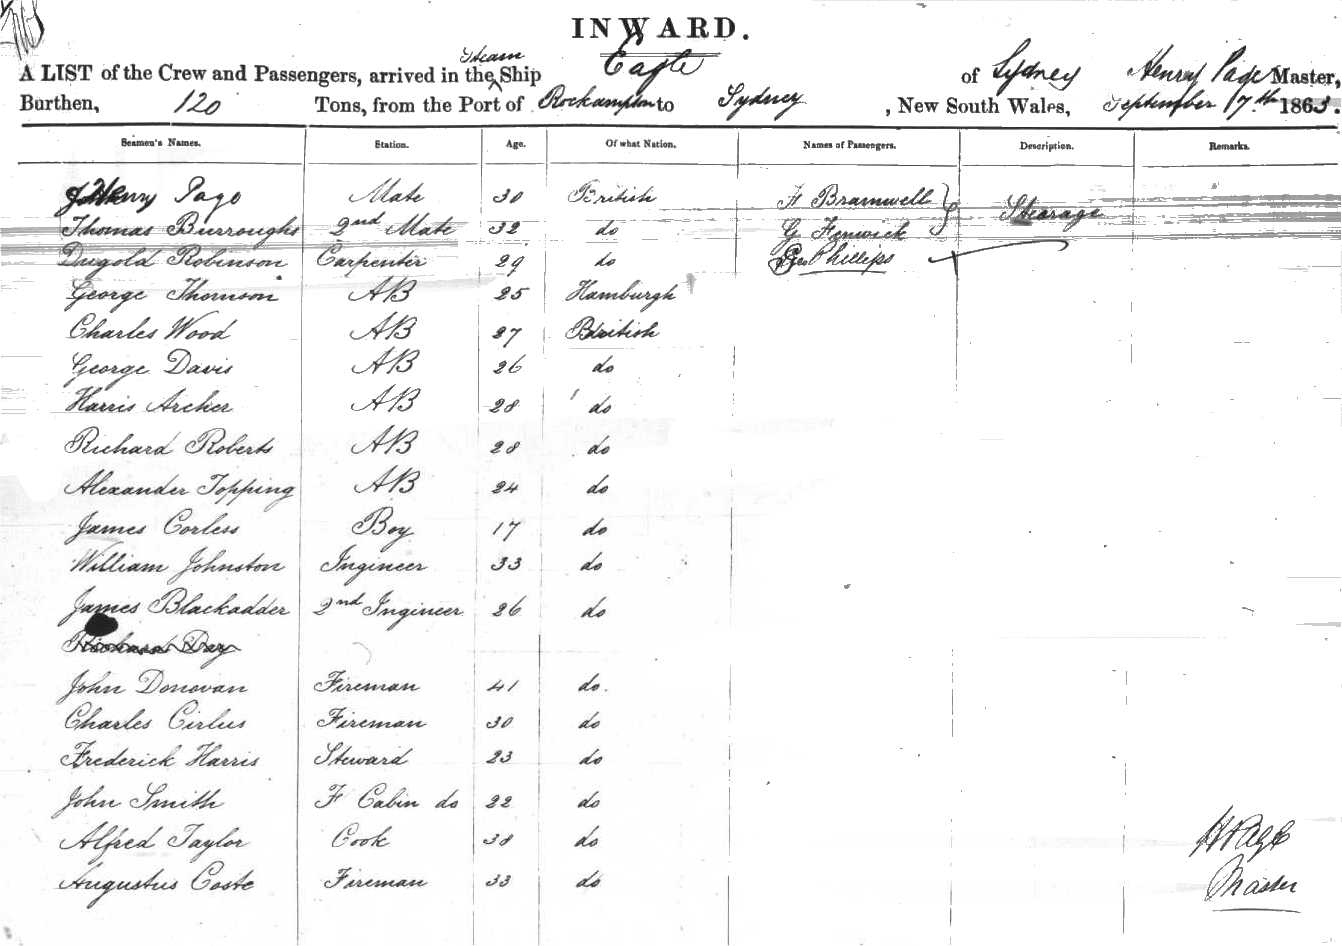 INWARD.
A LIST of the Crew and Passengers, arrived in the Steam Ship Eagle of Sydney Henry Page Master,
Burthen, 120 Tons, from the Port of Rockampton to Sydney, New South Wales, September 17th 1863.
Seamen's Names. Station. Age. Of what Nation. Names of Passengers. Description. Remarks.
Henry Page Mate 30 British H Bramwell Stearage
Thomas Burroughs 2nd Mate 32 do G Fenwick
Dugold Robinson Carpenter 29 do Phillips
George Thomson AB 25 Hamburgh
Charles Wood AB 27 British
George Davis AB 26 do
Harris Archer AB 28 do
Richard Roberts AB 28 do
Alexander Topping AB 24 do
James Corless Boy 17 do
William Johnston Ingineer 33 do
James Blackadder 2nd Ingineer 26 do
Richard Day
John Donovan Fireman 41 do.
Charles Cirlus Fireman 30 do
Frederick Harris Steward 23 do
John Smith F Cabin do 22 do
Alfred Taylor Cook 38 do
Augustus Coste Fireman 33 do
H Page
Master